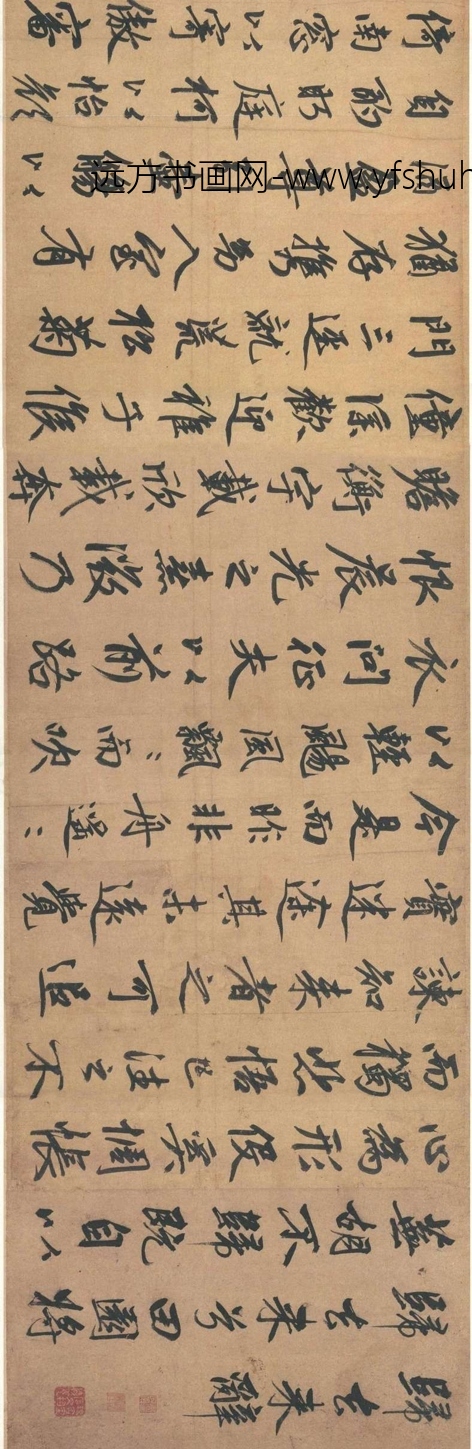 歸去來辭
歸去來兮田園將
蕪胡不歸既自以
心為形役奚惆悵
而獨悲悟已往之不
諫知來者之可追
實迷途其未遠覺
今是而昨非舟遙〻
以輕颺風飄〻而吹
衣問征夫以前路
恨晨光之熹微乃
瞻衡宇載欣載奔
僮僕歡迎稚子候
門三逕就荒松菊
猶存攜幼入室有
酒盈尊引壺觴以
自酌眄庭柯以怡顏
倚南窗以寄傲審
远方书画网-www.yfshuh